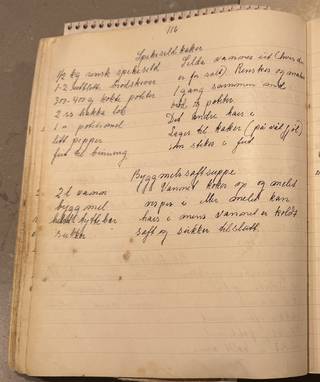 116
Spekesildkaker
1/2 kg rensk spekesild
1-2 brødskiver
300-400 g kokte poteter
2 ss hakka løk
1 potetmel
litt pepper
Silda vannes ut (hvis den
er for salt) Renskes og males
1 gang sammen med
brød og poteter.
Det andre has i
Lages til kaker (på mjøl)
Som stekes i fett
Byggmelssaftsuppe
2 l vann
bygg mel
sukker
Vannet koker op og melet
i eller melet kan
haes i mens vannet er koldt
saft og sukker tilslutt.